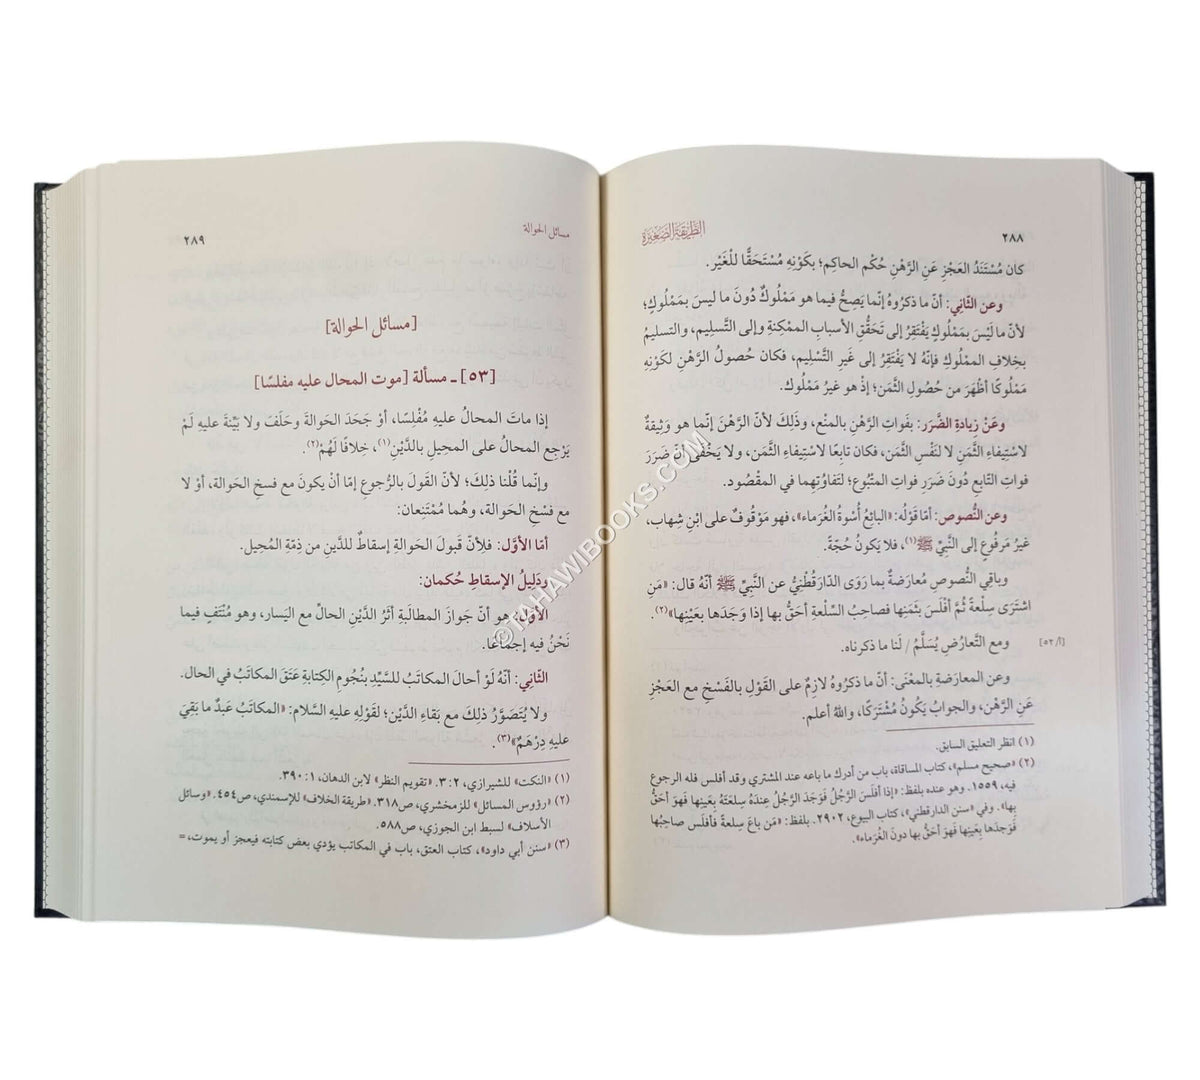 ٢٨٨
الطريقة الصغيرة
كان مُسْتَنَدُ العَجْزِ عَنِ الرَّهْنِ حُكْم الحاكِمِ؛ بكَوْنِهِ مُسْتَحَقًّا للْغَيْر.
وعن الثّاني: أنّ ما ذكرُوهُ إنّما يَصِحُّ فيما هو مَمْلُوكٌ دُونَ ما ليسَ بمَمْلُوكٍ؛
لأنّ ما لَيْسَ بمَمْلوكٍ يَفْتَقِرُ إلى تَحَقُّقِ الأسبابِ الممْكِنةِ وإلى التَّسْلِيم، والتسليمُ
بخِلافِ الممْلُوكِ فإنّهُ لا يَفْتَقِرُ إلى غَيرِ التَّسْلِيم، فكان حُصولُ الرَّهْنِ لكَوْنِهِ
مَمْلُوكًا أظهَرَ من حُصُولِ الثَّمَن؛ إذْ هو غيرُ مَمْلُوك.
وعَنْ زِيادةِ الضَّرَر: بفَواتِ الرَّهْنِ بالمنْع، وذَلِكَ لأنّ الرَّهْنَ إنّما هو وَثِيقةٌ
لاسْتِيفاءِ الثَّمَنِ لا لنَفْسِ الثَّمَن، فكان تابعًا لاسْتِيفاءِ الثَّمَن، ولا يَخْفَى أنّ ضَرَرَ
فواتِ التَّابعِ دُونَ ضَررِ فواتِ المتْبُوع؛ لتَفاوُتِهِما في المقْصُود.
وعنِ النُّصوص: أمّا قَوْلُهُ: «البائعُ أُسْوةُ الغُرَماء»، فهو مَوْقُوفٌ على ابْنِ شِهاب،
غيرُ مَرفُوعٍ إلى النَّبيِّ ﷺ(١)، فلا يَكونُ حُجّةً.
وباقي النُّصوصِ مُعارَضةٌ بما رَوَى الدّارَقُطْنِيُّ عن النَّبيِّ ﷺ أنّهُ قال: «مَنِ
اشْتَرَى سِلْعةً ثُمَّ أفْلَسَ بثَمَنِها فصاحِبُ السِّلْعةِ أحَقُّ بها إذا وَجَدَها بعَيْنِها»(٢).
ومع التَّعارُضِ يُسَلَّمُ / لَنا ما ذكرناه.
[أ/ ٥٢]
وعنِ المعارَضةِ بالمعْنَى: أنّ ما ذكرُوهُ لازِمٌ على القَوْلِ بالفَسْخِ معَ العَجْزِ
عَنِ الرَّهْن، والجوابُ يَكُونُ مُشْتَرَكًا، واللهُ أعلم.
(١) انظر التعليق السابق.
(٢) «صحيح مسلم»، كتاب المساقاة، باب من أدرك ما باعه عند المشتري وقد أفلس فله الرجوع
فيه، ١٥٥٩. وهو عنده بلفظ: «إذا أفلَسَ الرَّجُلُ فوَجَدَ الرَّجُلُ عِندَهُ سِلعَتَهُ بعَينِها فهوَ أحَقُّ
بها». وفي «سنن الدارقطني»، كتاب البيوع، ٢٩٠٢. بلفظ: «مَن باعَ سِلعةً فأفلَسَ صاحِبُها
فوَجَدَها بعَينِها فهوَ أحَقُّ بها دونَ الغُرَماء».
مسائل الحوالة
٢٨٩
[مسائل الحوالة]
[٥٣] ـ مسألة [موت المحال عليه مفلسًا]
إذا ماتَ المحالُ عليهِ مُفْلِسًا، أوْ جَحَدَ الحَوالةَ وحَلَفَ ولا بَيِّنةَ عليهِ لَمْ
يَرْجِعِ المحالُ على المحيلِ بالدَّيْنِ(١)، خِلافًا لَهُمْ(٢).
وإنّما قُلْنا ذلِكَ؛ لأنّ القَولَ بالرُّجوعِ إمّا أنْ يكونَ مع فسخِ الحَوالة، أوْ لا
مع فسْخِ الحَوالة، وهُما مُمْتَنِعان:
أمّا الأوَّل: فلأنّ قَبولَ الحَوالةِ إسقاطٌ للدَّينِ من ذِمّةِ المُحِيل.
ودَليلُ الإسقاطِ حُكمان:
الأوّل: هو أنّ جَوازَ المطالَبةِ أثَرُ الدَّيْنِ الحالِّ مع اليَسار، وهو مُنْتَفٍ فيما
نَحْنُ فيه إجْماعًا.
الثّاني: أنّهُ لَوْ أحالَ المكاتَبُ للسَّيِّدِ بنُجُومِ الكِتابةِ عَتَقَ المكاتَبُ في الحال.
ولا يُتَصَوَّرُ ذلِكَ مع بَقاءِ الدَّيْن؛ لقَوْلِهِ عليهِ السَّلام: «المكاتَبُ عَبدٌ ما بَقِيَ
عليهِ دِرْهَمٌ»(٣).
(١) «النكت» للشيرازي، ٢: ٣. «تقويم النظر» لابن الدهان، ١: ٣٩٠.
(٢) «رؤوس المسائل» للزمخشري، ص٣١٨. «طريقة الخلاف» للإسمندي، ص٤٥٤. «وسائل
الأسلاف» لسبط ابن الجوزي، ص٥٨٨.
(٣) «سنن أبي داود»، كتاب العتق، باب في المكاتب يؤدي بعض كتابته فيعجز أو يموت، =
©TAHAWIBOOKS.COM